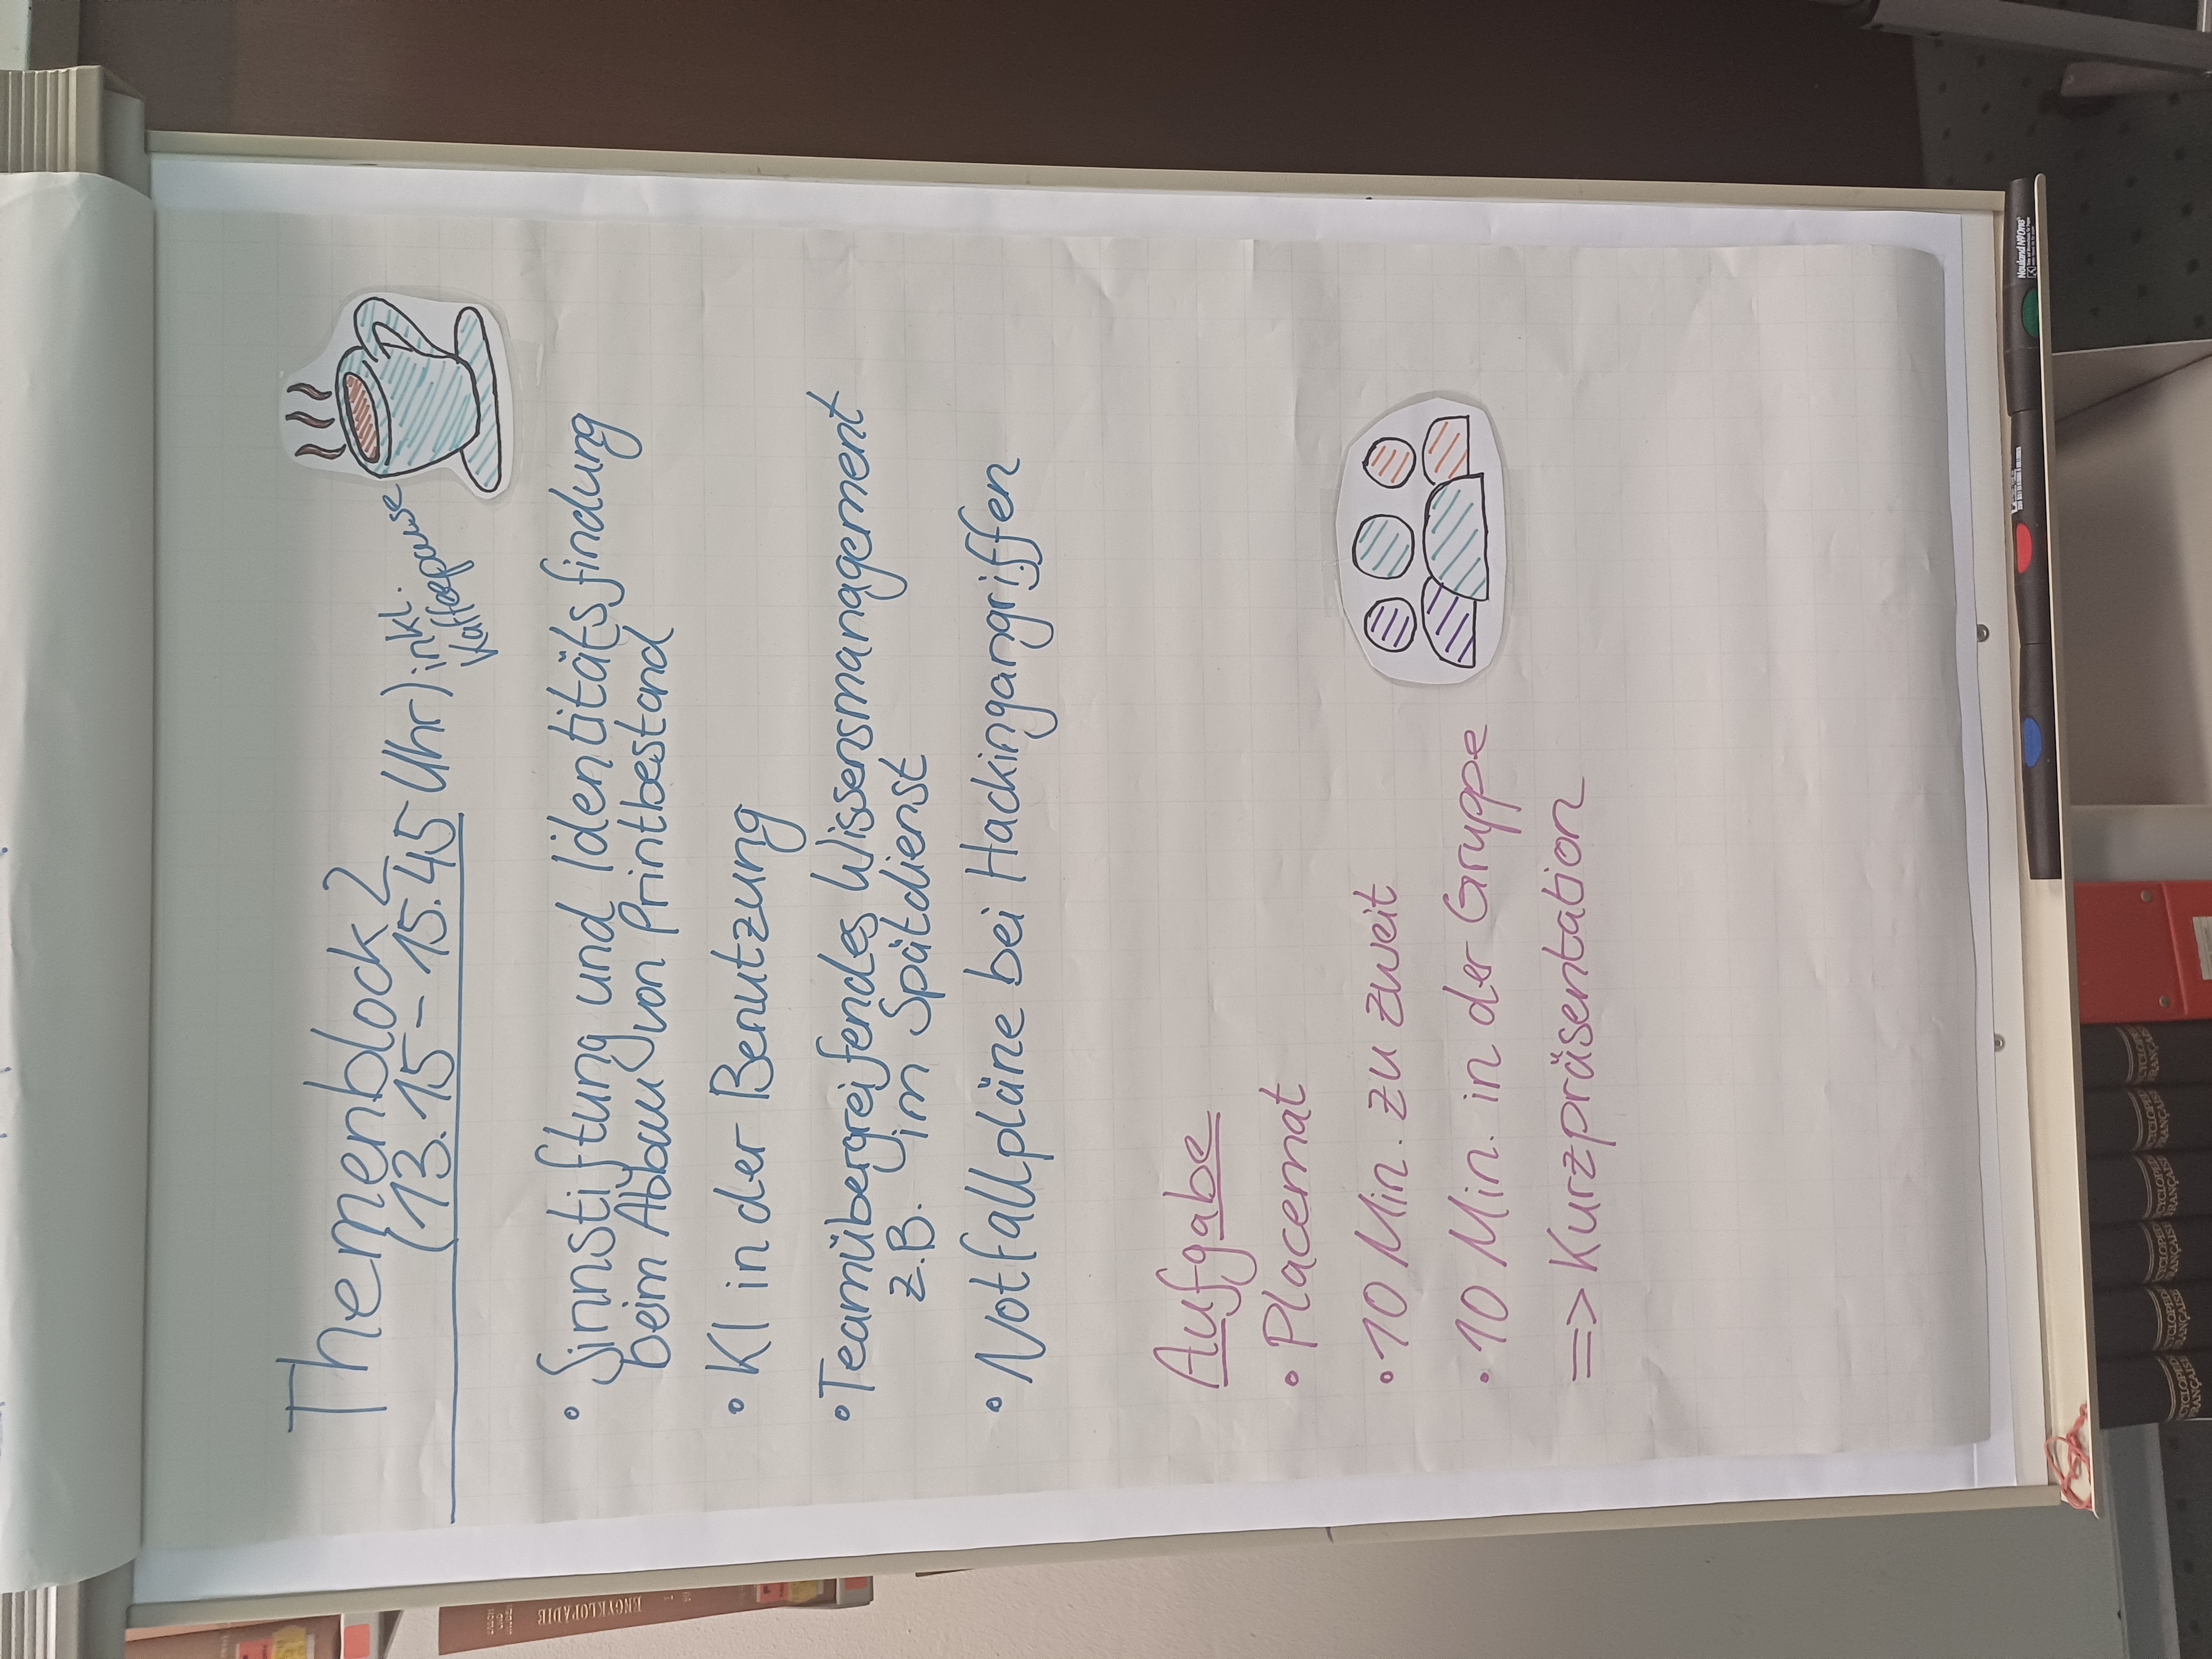 Themenblock 2
(13.15 - 15.45 Uhr) inkl.
Kaffeepause
• Sinnstiftung und Identitätsfindung
beim Abbau von Printbestand
• KI in der Benutzung
• Teamübergreifendes Wissensmanagement
z.B. im Spätdienst
• Notfallpläne bei Hackingangriffen
Aufgabe
• Placemat
• 10 Min. zu zweit
• 10 Min. in der Gruppe
=> Kurzpräsentation
Neuland No.One
ENCYKLOPÄDIE